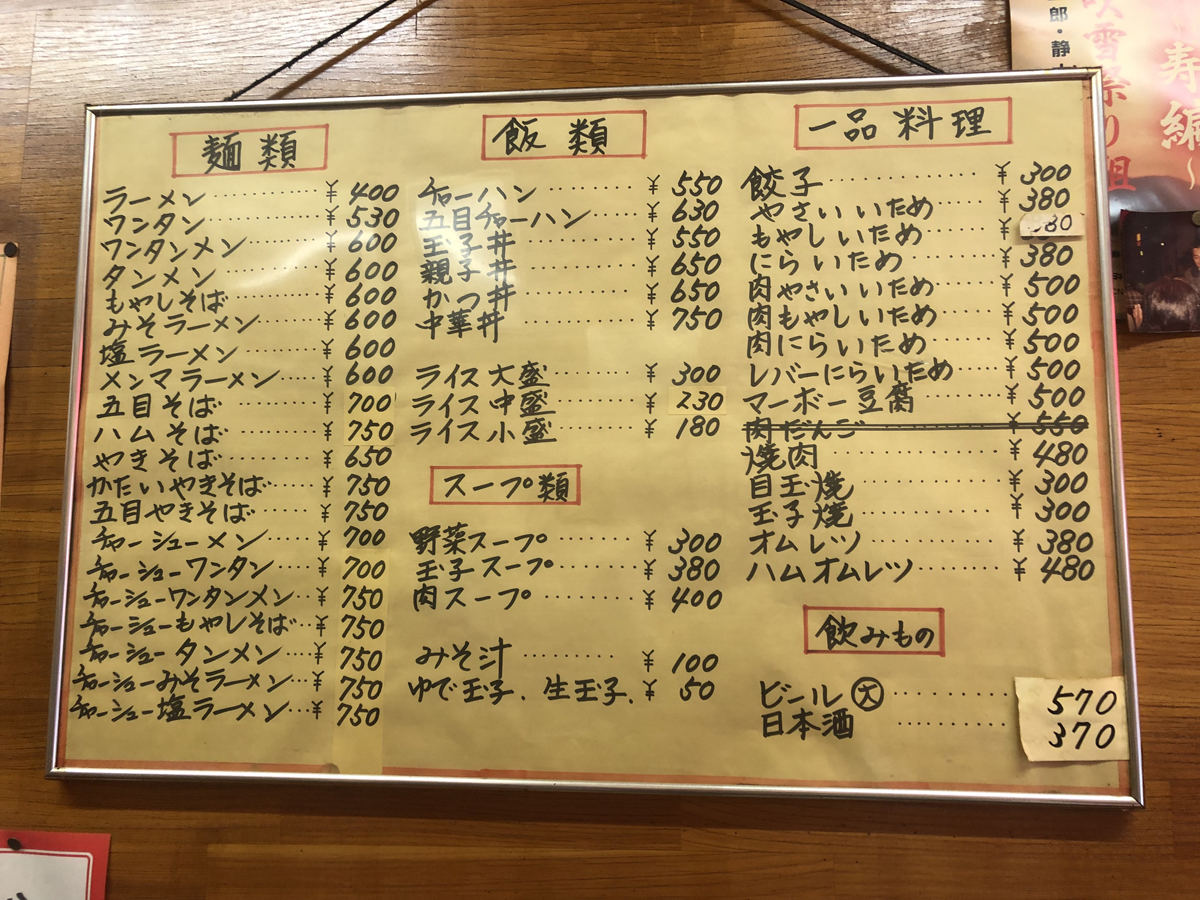 麺類
ラーメン ¥ 400
ワンタン ¥ 530
ワンタンメン ¥ 600
タンメン ¥ 600
もやしそば ¥ 600
みそラーメン ¥ 600
塩ラーメン ¥ 600
メンマラーメン ¥ 600
五目そば ¥ 700
ハムそば ¥ 750
やきそば ¥ 650
かたいやきそば ¥ 750
五目やきそば ¥ 750
チャーシューメン ¥ 700
チャーシューワンタン ¥ 700
チャーシューワンタンメン ¥ 750
チャーシューもやしそば ¥ 750
チャーシュータンメン ¥ 750
チャーシューみそラーメン ¥ 750
チャーシュー塩ラーメン ¥ 750
飯類
チャーハン ¥ 550
五目チャーハン ¥ 630
玉子丼 ¥ 550
親子丼 ¥ 650
かつ丼 ¥ 650
中華丼 ¥ 750
ライス大盛 ¥ 300
ライス中盛 ¥ 230
ライス小盛 ¥ 180
スープ類
野菜スープ ¥ 300
玉子スープ ¥ 380
肉スープ ¥ 400
みそ汁 ¥ 100
ゆで玉子、生玉子、 ¥ 50
一品料理
餃子 ¥ 300
やさいいため ¥ 380
もやしいため ¥ 380
にらいため ¥ 380
肉やさいいため ¥ 500
肉もやしいため ¥ 500
肉にらいため ¥ 500
レバーにらいため ¥ 500
マーボー豆腐 ¥ 500
肉だんご ¥ 550
焼肉 ¥ 480
目玉焼 ¥ 300
玉子焼 ¥ 300
オムレツ ¥ 380
ハムオムレツ ¥ 480
飲みもの
ビール大 570
日本酒 370
郎・静
吹雪祭り組
寿編〜